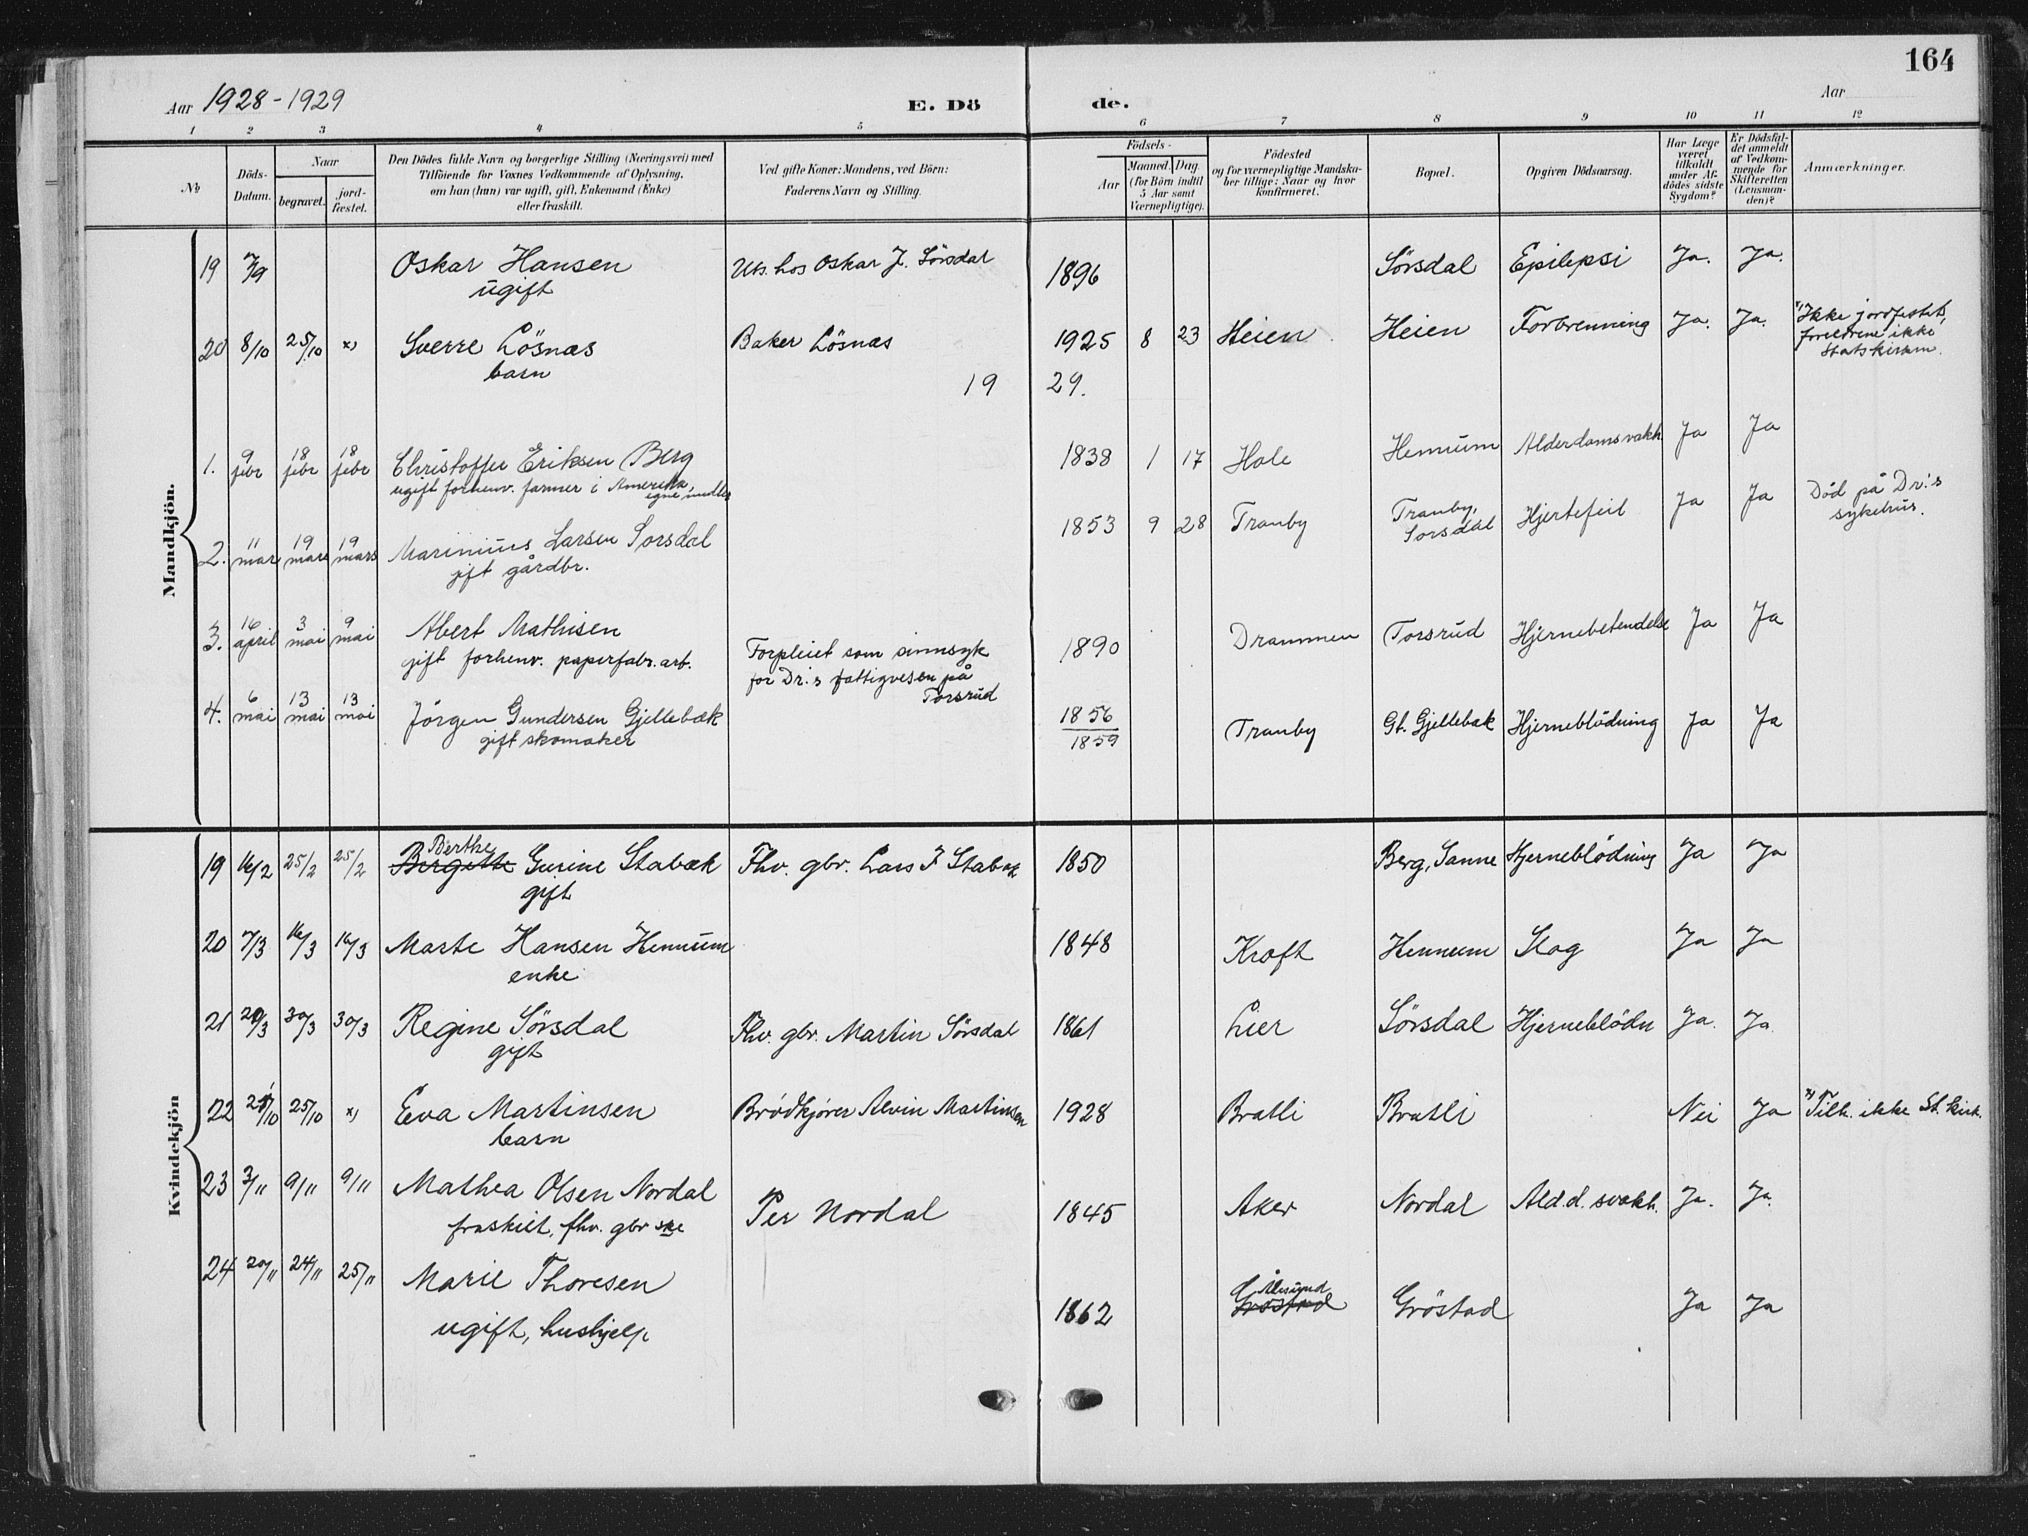 164
Aar 1928-1929 E. Dö de. Aar
1 2 3 4 5 6 7 8 9 10 11 12
No
Döds-Datum.
Naar
begravet.
jord-fæstet.
Den Dödes fulde Navn og borgerlige Stilling (Næringsvei) med
Tilföiende for Voxnes Vedkommende af Oplysning,
om han (hun) var ugift, gift, Enkemand (Enke)
eller fraskilt.
Ved gifte Koner: Mandens, ved Börn:
Faderens Navn og Stilling.
Födsels-
Aar
Maaned. Dag.
(for Börn indtil
5 Aar samt
Værnepligtige).
Födested
og for værnepligtige Mandska-
ber tillige: Naar og hvor
konfirmeret.
Bopæl.
Opgiven Dödsaarsag.
Har Læge
været
tilkaldt
under Af-
dödes sidste
Sygdom?
Er Dödsfal-
det anmeldt
af Vedkom-
mende for
Skifteretten
(Lensman-
den)?
Anmærkninger.
Mandkjön.
19 7/9 Oskar Hansen Uts. hos Oskar J. Sörsdal 1896 Sörsdal Epilepsi Ja. Ja.
ugift
20 8/10 25/10 x) Sverre Lösnæs Baker Lösnæs 1925 8 23 Heien Heien Forbrenning Ja. Ja. x) Ikke jordfestet,
barn foreldrene ikke
Statskirken.
19 29.
1. 9 febr 18 febr 18 febr Christoffer Eriksen Berg 1838 1 17 Hole Hennum Alderdomsvakh. Ja Ja
ugift forhenv. farmer i Amerika,
egne midler
2. 11 mar 19 mars 19 mars Marinius Larsen Sorsdal 1853 9 28 Tranby Tranby, Sorsdal Hjertefeil Ja Ja Död på Dr:s
gift gårdbr. sykehus.
3. 16 april 3 mai 9 mai Albert Mathisen Forpleiet som sinnsyk 1890 Drammen Torsrud Hjernebetendelse Ja Ja
gift forhenv. paperfabr. arb. for Dr:s fattigvesen på
Torsrud
4. 6 mai 13 mai 13 mai Jörgen Gundersen Gjellebæk 1856 Tranby Gt. Gjellebæk Hjerneblödning Ja Ja
gift skomaker 1859
Kvindekjön
19 16/2 25/2 25/2 Birgitte Berthe Gurine Stabæk Fhv. gbr. Lars J Stabæk 1850 Berg, Sanne Hjerneblödning Ja Ja
gift
20 7/3 16/3 16/3 Marte Hansen Hennum 1848 Kroft Hennum Slag Ja Ja
enke
21 20/3 30/3 30/3 Regine Sörsdal Fhv. gbr. Martin Sörsdal 1861 Lier Sörsdal Hjerneblödn Ja. Ja.
gift
22 21/10 25/10 x) Eva Martinsen Brödkjörer Alvin Martinsen 1928 Bratli Bratli Nei Ja x) Tilh. ikke St. kirk.
barn
23 3/11 9/11 9/11 Mathea Olsen Nordal Per Nordal 1845 Aker Nordal Ald.d. svakh. Ja. Ja.
fraskilt, fhv. gbr ske
24 20/11 24/11 25/11 Marie Thoresen 1862 Gröstad Ålesund Gröstad Ja Ja
ugift, hushjelp